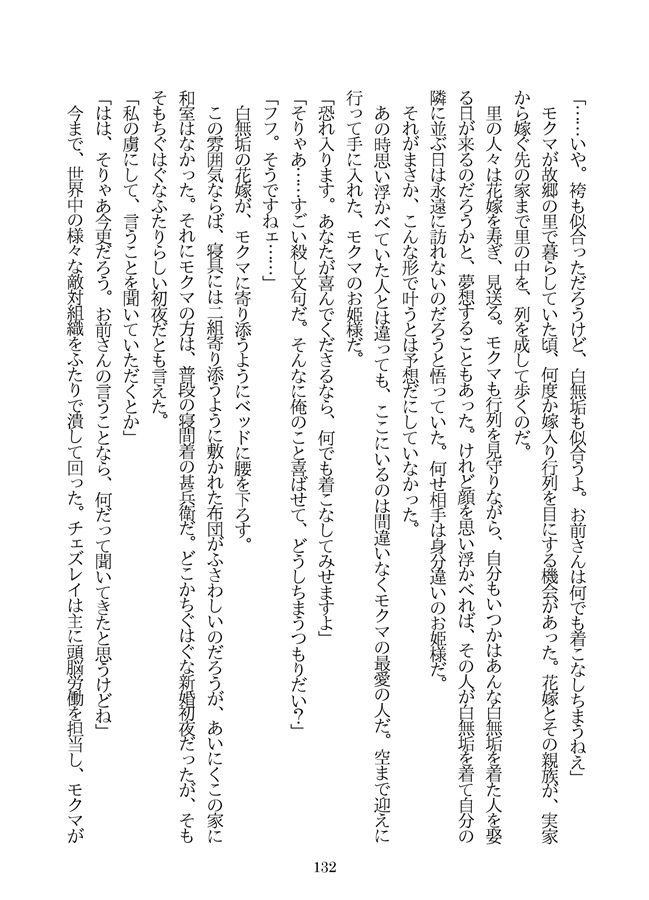 「……いや。袴も似合っただろうけど、白無垢も似合うよ。お前さんは何でも着こなしちまうねえ」
モクマが故郷の里で暮らしていた頃、何度か嫁入り行列を目にする機会があった。花嫁とその親族が、実家
から嫁ぐ先の家まで里の中を、列を成して歩くのだ。
里の人々は花嫁を寿ぎ、見送る。モクマも行列を見守りながら、自分もいつかはあんな白無垢を着た人を娶
る日が来るのだろうかと、夢想することもあった。けれど顔を思い浮かべれば、その人が白無垢を着て自分の
隣に並ぶ日は永遠に訪れないのだろうと悟っていた。何せ相手は身分違いのお姫様だ。
それがまさか、こんな形で叶うとは予想だにしていなかった。
あの時思い浮かべていた人とは違っても、ここにいるのは間違いなくモクマの最愛の人だ。空まで迎えに
行って手に入れた、モクマのお姫様だ。
「恐れ入ります。あなたが喜んでくださるなら、何でも着こなしてみせますよ」
「そりゃあ……すごい殺し文句だ。そんなに俺のこと喜ばせて、どうしちまうつもりだい？」
「フフ。そうですねェ……」
白無垢の花嫁が、モクマに寄り添うようにベッドに腰を下ろす。
この雰囲気ならば、寝具には二組寄り添うように敷かれた布団がふさわしいのだろうが、あいにくこの家に
和室はなかった。それにモクマの方は、普段の寝間着の甚兵衛だ。どこかちぐはぐな新婚初夜だったが、そも
そもちぐはぐなふたりらしい初夜だとも言えた。
「私の虜にして、言うことを聞いていただくとか」
「はは、そりゃあ今更だろう。お前さんの言うことなら、何だって聞いてきたと思うけどね」
今まで、世界中の様々な敵対組織をふたりで潰して回った。チェズレイは主に頭脳労働を担当し、モクマが
132